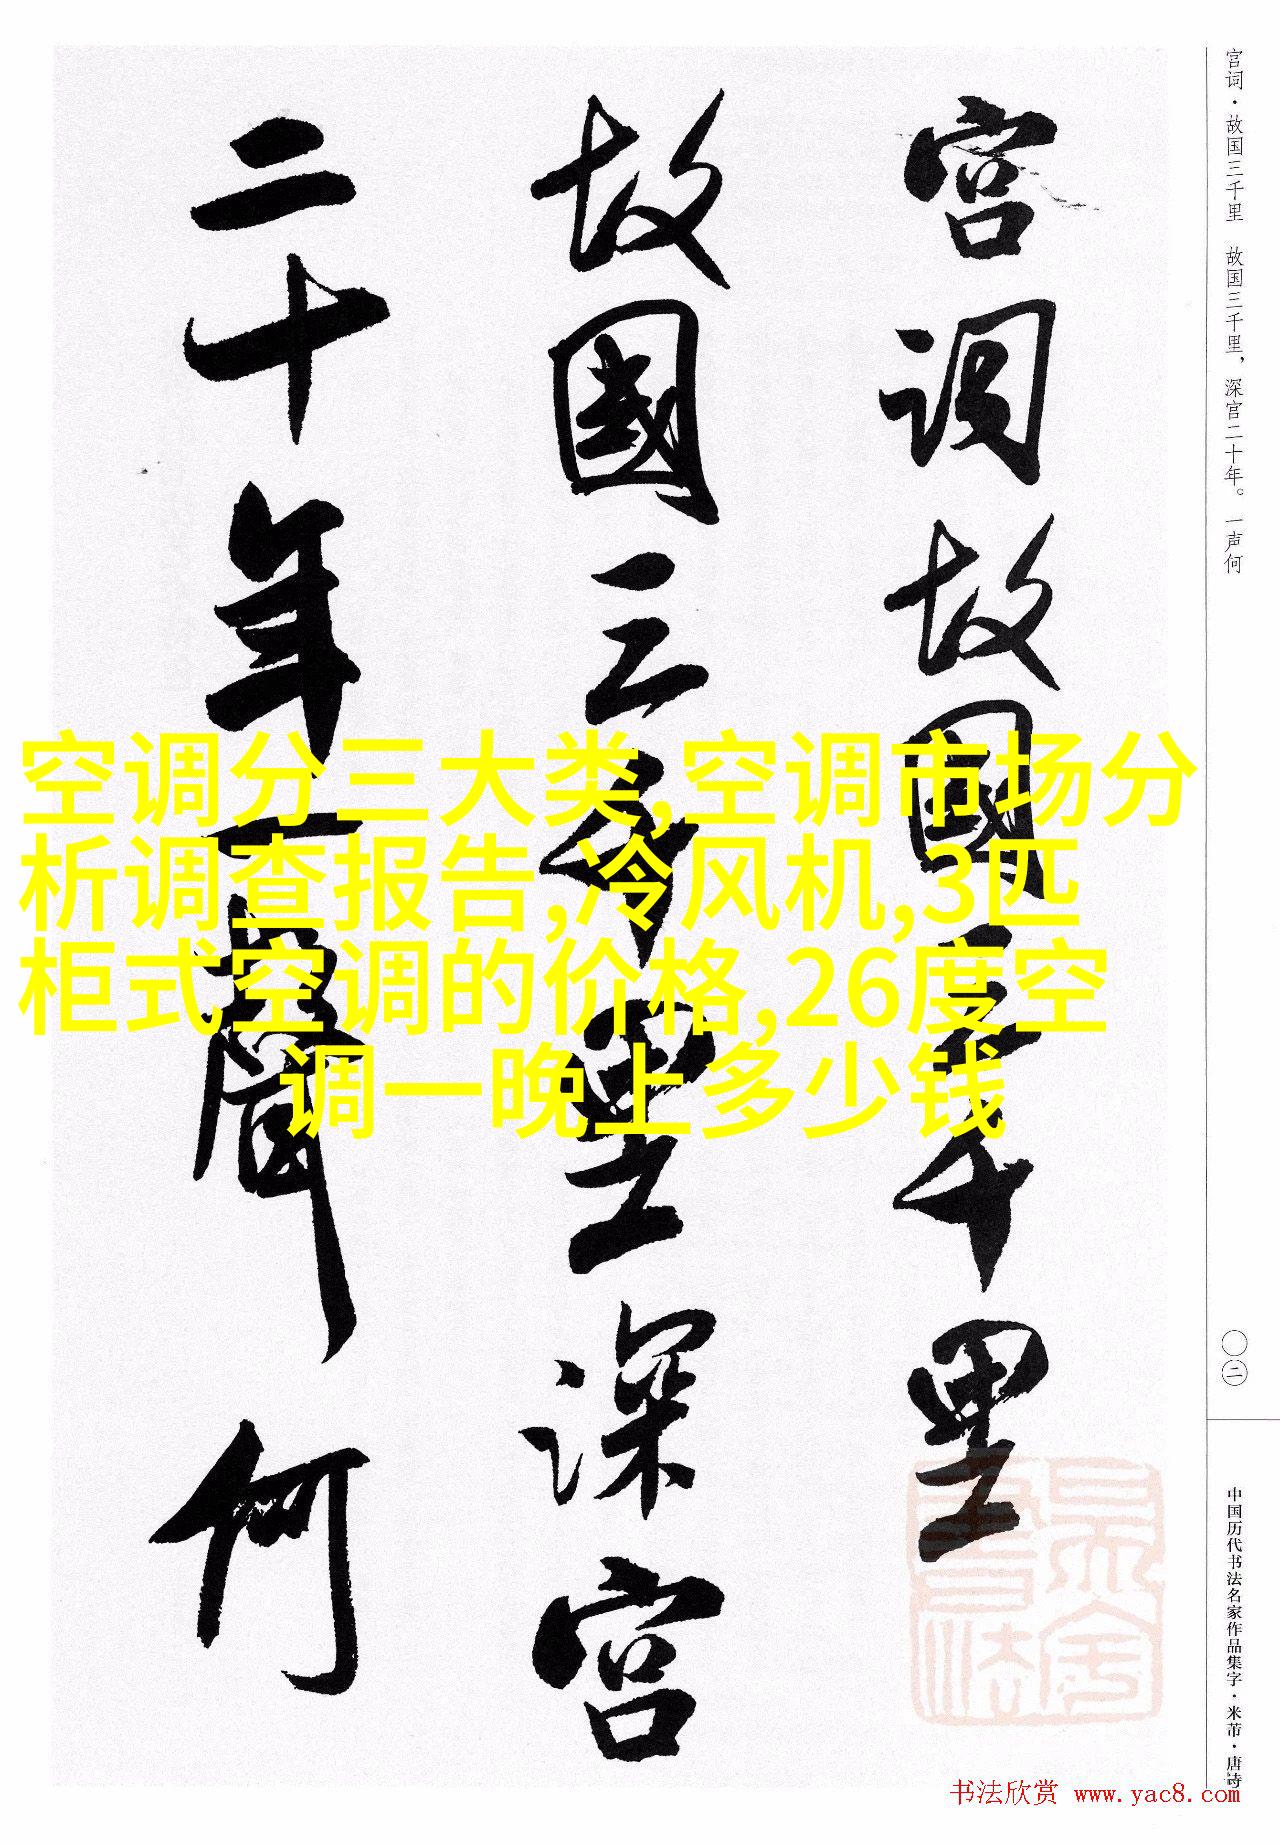 宫词·故国三千里 故国三千里，深宫二十年。一声何
宫词故國三千里
故國三千里深宫
二十年一聲何
空调分三大类,空调市场分
析调查报告,冷风机,3匹
柜式空调的价格,26度空
调一晚上多少钱
〇二
中国历代书法名家作品集字·米芾·唐诗
书法欣赏 www.yac8.com